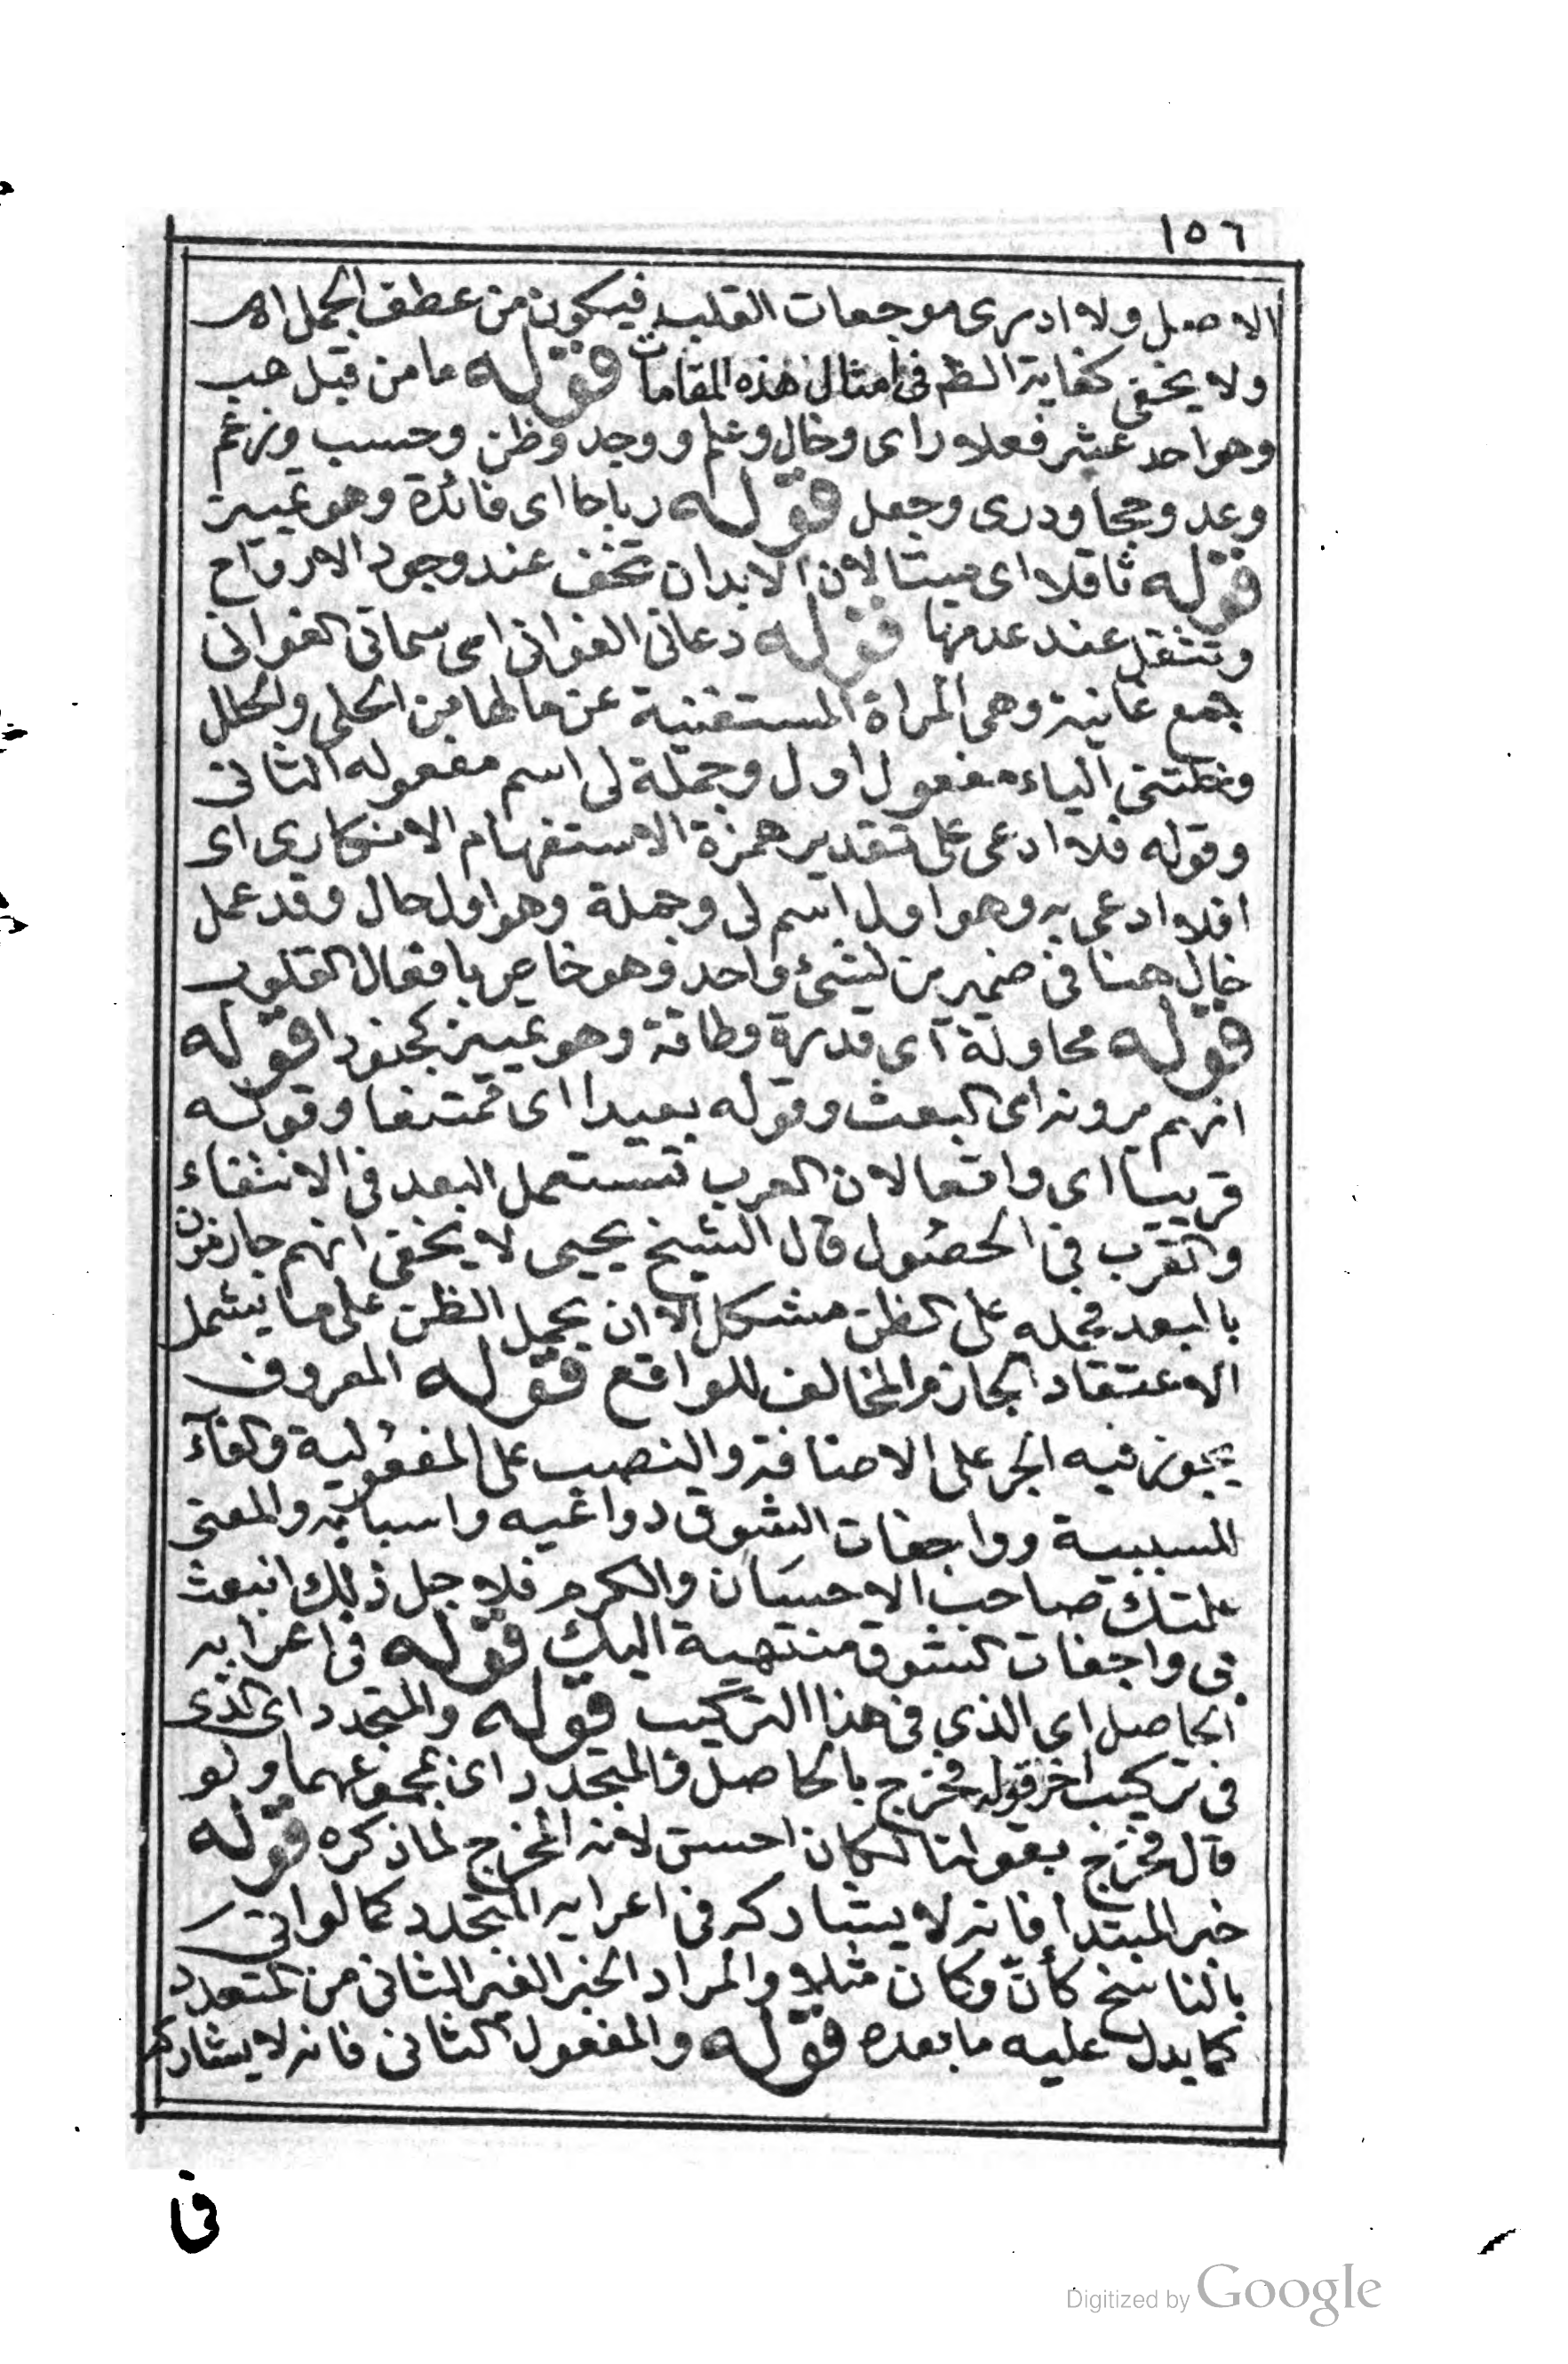 ١٥٦
الاصل ولا ادرى موجعات القلب فيكون من عطف الجمل اهـ
ولا يخفى كفاية الظن فى امثال هذه المقامات قوله ما من قبل هب
وهو احد عشر فعلا راى وخال وعلم ووجد وظن وحسب وزعم
وعد وحجا ودرى وجعل قوله رباحا اى فائدة وهو تمييز
قوله ثاقلا اى ميتا لان الابدان تخف عند وجود الارواح
وتثقل عند عدمها قوله دعانى الغوانى اى سمانى الغوانى
جمع غانية وهى المراة المستغنية عن مالها من الحلى والحلل
وخلتنى الياء مفعول اول وجملة لى اسم مفعوله الثانى
وقوله فلا ادعى على تقدير همزة الاستفهام الانكارى اى
افلا ادعى به وهو اول اسم لى وجملة وهو اول حال وقد عمل
خال هنا فى ضميرين لشئ واحد وهو خاص بافعال القلوب
قوله محاولة اى قدرة وطاقة وهو تمييز كجنودا قوله
انهم يرونه اى البعث وقوله بعيدا اى ممتنعا وقوله
قريبا اى واقعا لان العرب تستعمل البعد فى الانتفاء
والقرب فى الحصول قال الشيخ يحيى لا يخفى انهم جازمون
بالبعد فحمله على الظن مشكل الا ان يحمل الظن على ما يشمل
الاعتقاد الجازم المخالف للواقع قوله المعروف
يجوز فيه الجر على الاضافة والنصب على المفعولية والفاء
للسببية وواجفات الشوق دواعيه واسبابه والمعنى
علمتك صاحب الاحسان والكرم فلاجل ذلك انبعث
بى واجفات الشوق منتهية اليك قوله فى اعرابه
الحاصل اى الذى فى هذا التركيب قوله والمتجدد اى الذى
فى تركيب اخر قوله فخرج بالحاصل والمتجدد اى بمجموعهما ولو
قال فخرج بقولنا لكان احسن لانه المخرج لما ذكره قوله
خبر المبتدأ فانه لا يشاركه فى اعرابه المتجدد كما لو اتى
بالناسخ كأن وكان مثلا والمراد الخبر الغير الثانى من المتعدد
كما يدل عليه ما بعده قوله والمفعول الثانى فانه لا يشاركه
فى
Digitized by Google